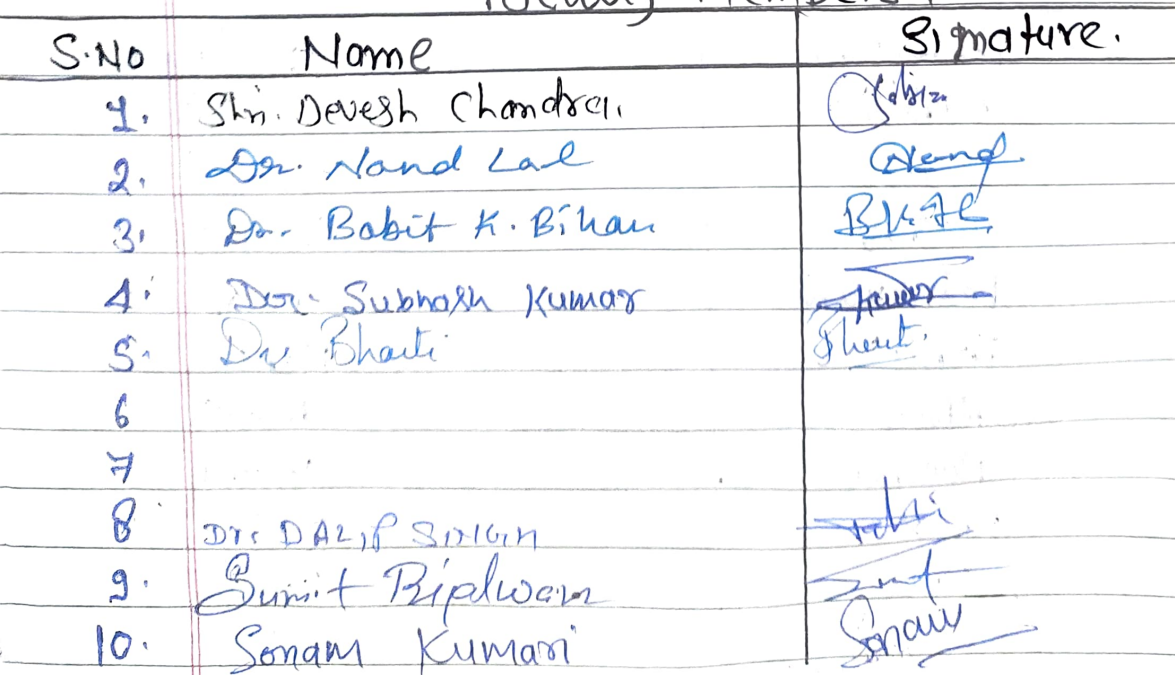 Members
S.No Name Signature.
1. Shri. Devesh Chandra.
2. Dr. Nand Lal Nand
3. Dr. Babit K. Bihan
4. Dr. Subhash Kumar
5. Dr Bharti Bharti
6
7
8 Dr. DALIP SINGH
9. Sumit Sumit
10. Sonam Kumari Sonam